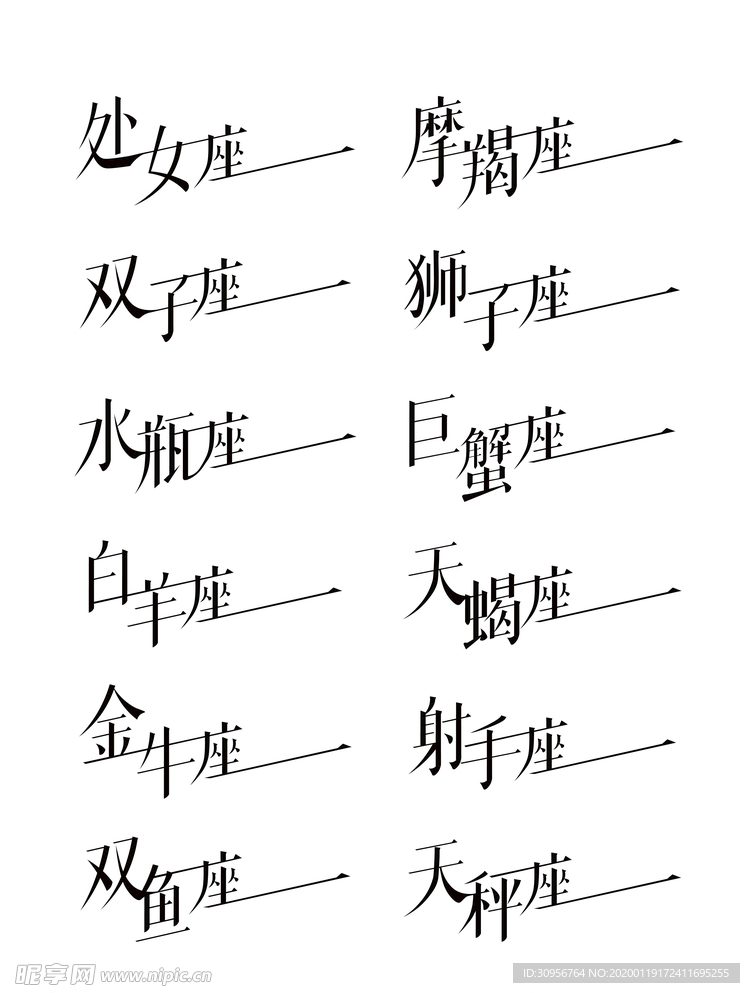 处女座 摩羯座
双子座 狮子座
水瓶座 巨蟹座
白羊座 天蝎座
金牛座 射手座
双鱼座 天秤座
昵享网 www.nipic.cn
ID:30956764 NO:20200119172411695255